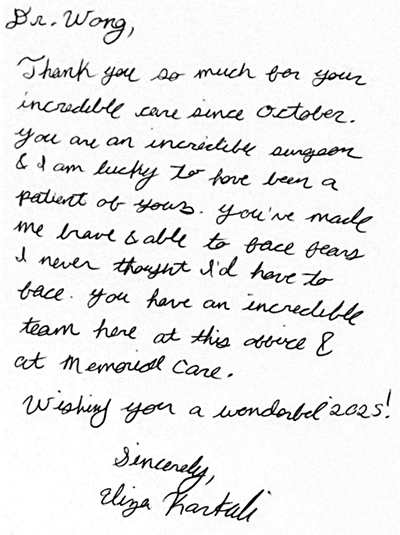 Dr. Wong,
Thank you so much for your
incredible care since October.
You are an incredible surgeon
& I am lucky to have been a
patient of yours. You've made
me brave & able to face fears
I never thought I'd have to
face. You have an incredible
team here at this office &
at Memorial Care.
Wishing you a wonderful 2025!
Sincerely,
Eliza